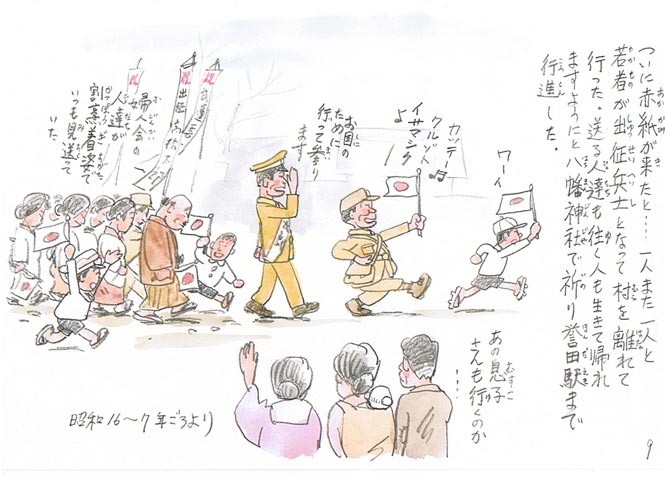 ついに赤紙が来たと…一人また一人と
若者が出征兵士となって村を離れて
行った。送る人達も往く人も生きて帰れ
ますようにと八幡神社で祈り誉田駅まで
行進した。
ワーイ
カッテー♪
クルゾト
イサマシク
よ
お国の
ために
行って参り
ます
祝
祝出征
婦人会の
人達が
割烹着姿で
いつも見送て
いた
あの息子
さんも行くのか
…
昭和16〜7年ごろより
9